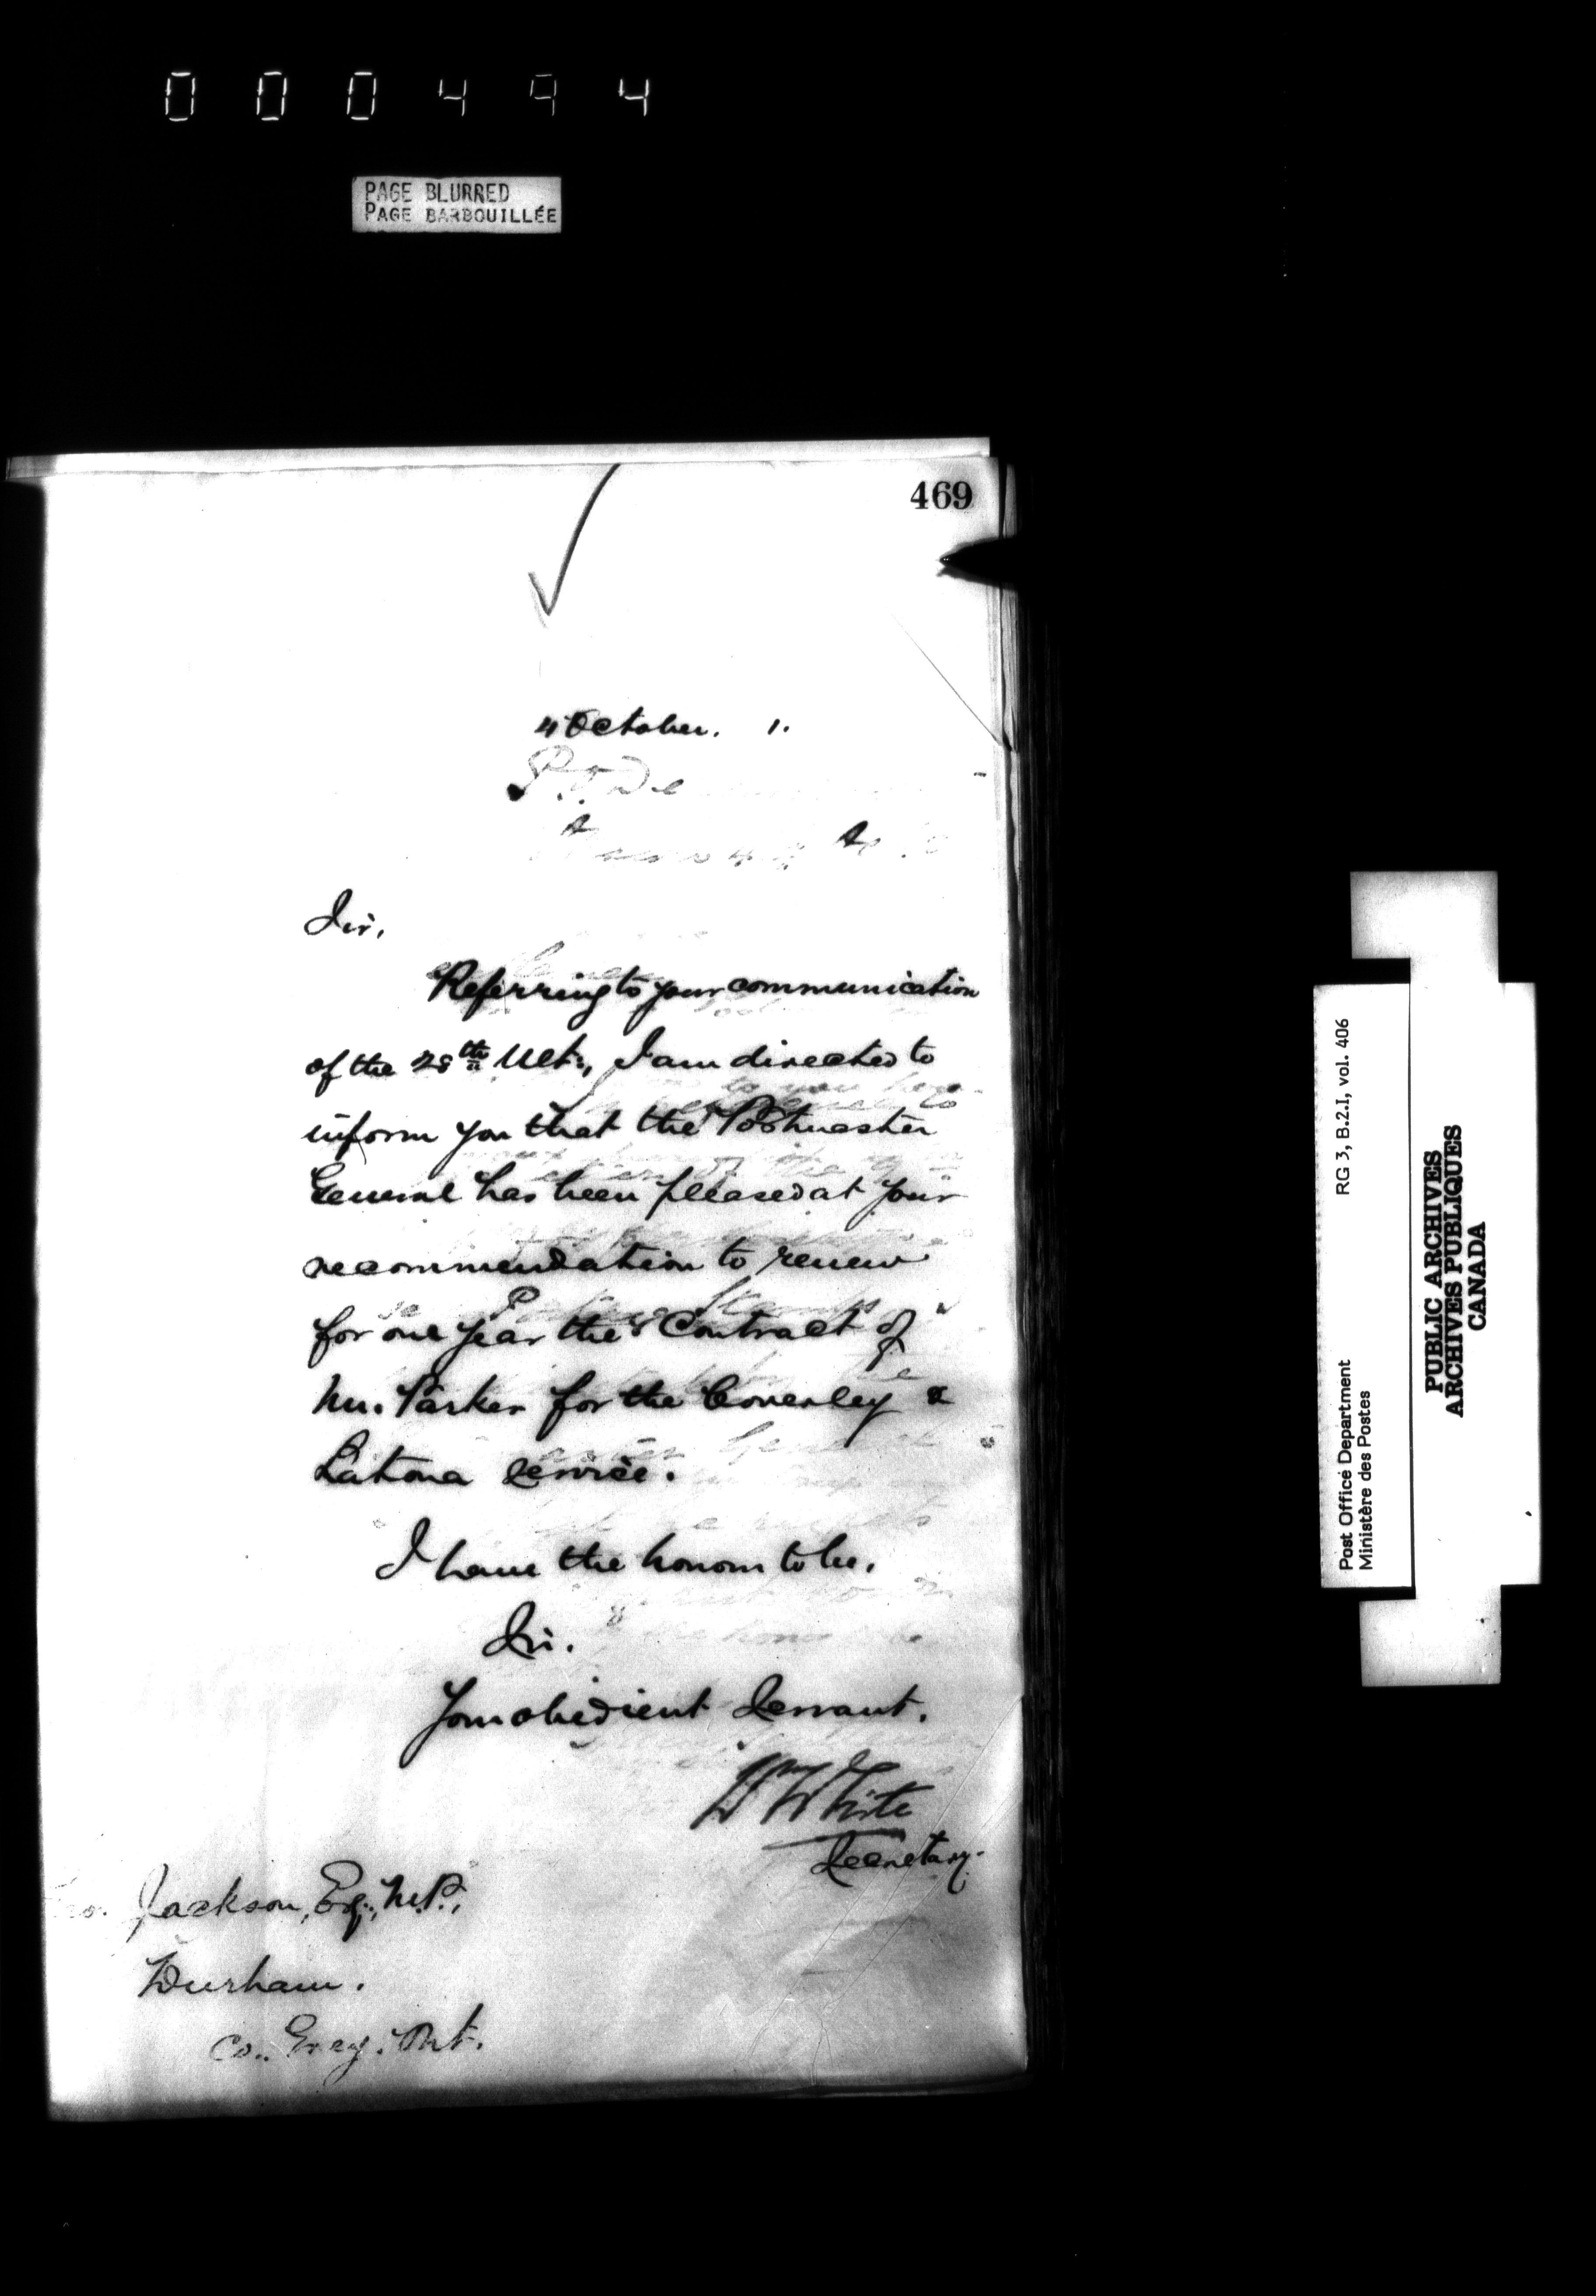 000494
PAGE BLURRED
PAGE BARBOUILLÉE
469
4 October. 1.
Sir,
Referring to your communication
of the 28th Ult:, I am directed to
inform you that the Postmaster
General has been pleased at your
recommendation to renew
for one year the Contract of
Mr. Parker for the Conerley &
Latona Service.
I have the honor to be,
Sir.
Your obedient Servant.
Wm White
Secretary.
Jackson, Esq:, M.P.,
Durham.
Co.. Grey. Ont.
Post Officé Department
Ministère des Postes
RG 3, B.2.I, vol. 406
PUBLIC ARCHIVES
ARCHIVES PUBLIQUES
CANADA